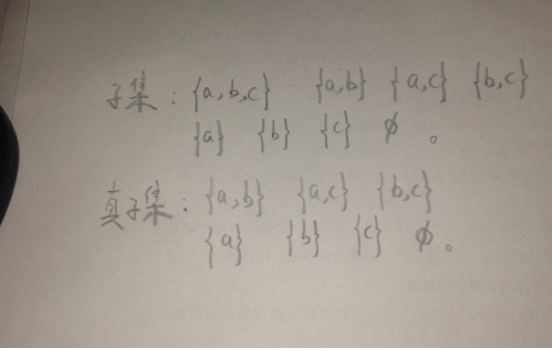 子集：{a,b,c} {a,b} {a,c} {b,c}
{a} {b} {c} ∅ 。
真子集：{a,b} {a,c} {b,c}
{a} {b} {c} ∅ 。